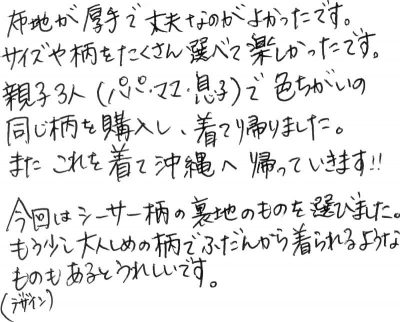 布地が厚手で丈夫なのがよかったです。
サイズや柄をたくさん選べて楽しかったです。
親子3人(パパ・ママ・息子)で色ちがいの
同じ柄を購入し、着て帰りました。
また これを着て沖縄へ帰っていきます!!
今回はシーサー柄の裏地のものを選びました。
もう少し大人しめの柄でふだんから着られるような
ものもあるとうれしいです。
(デザイン)